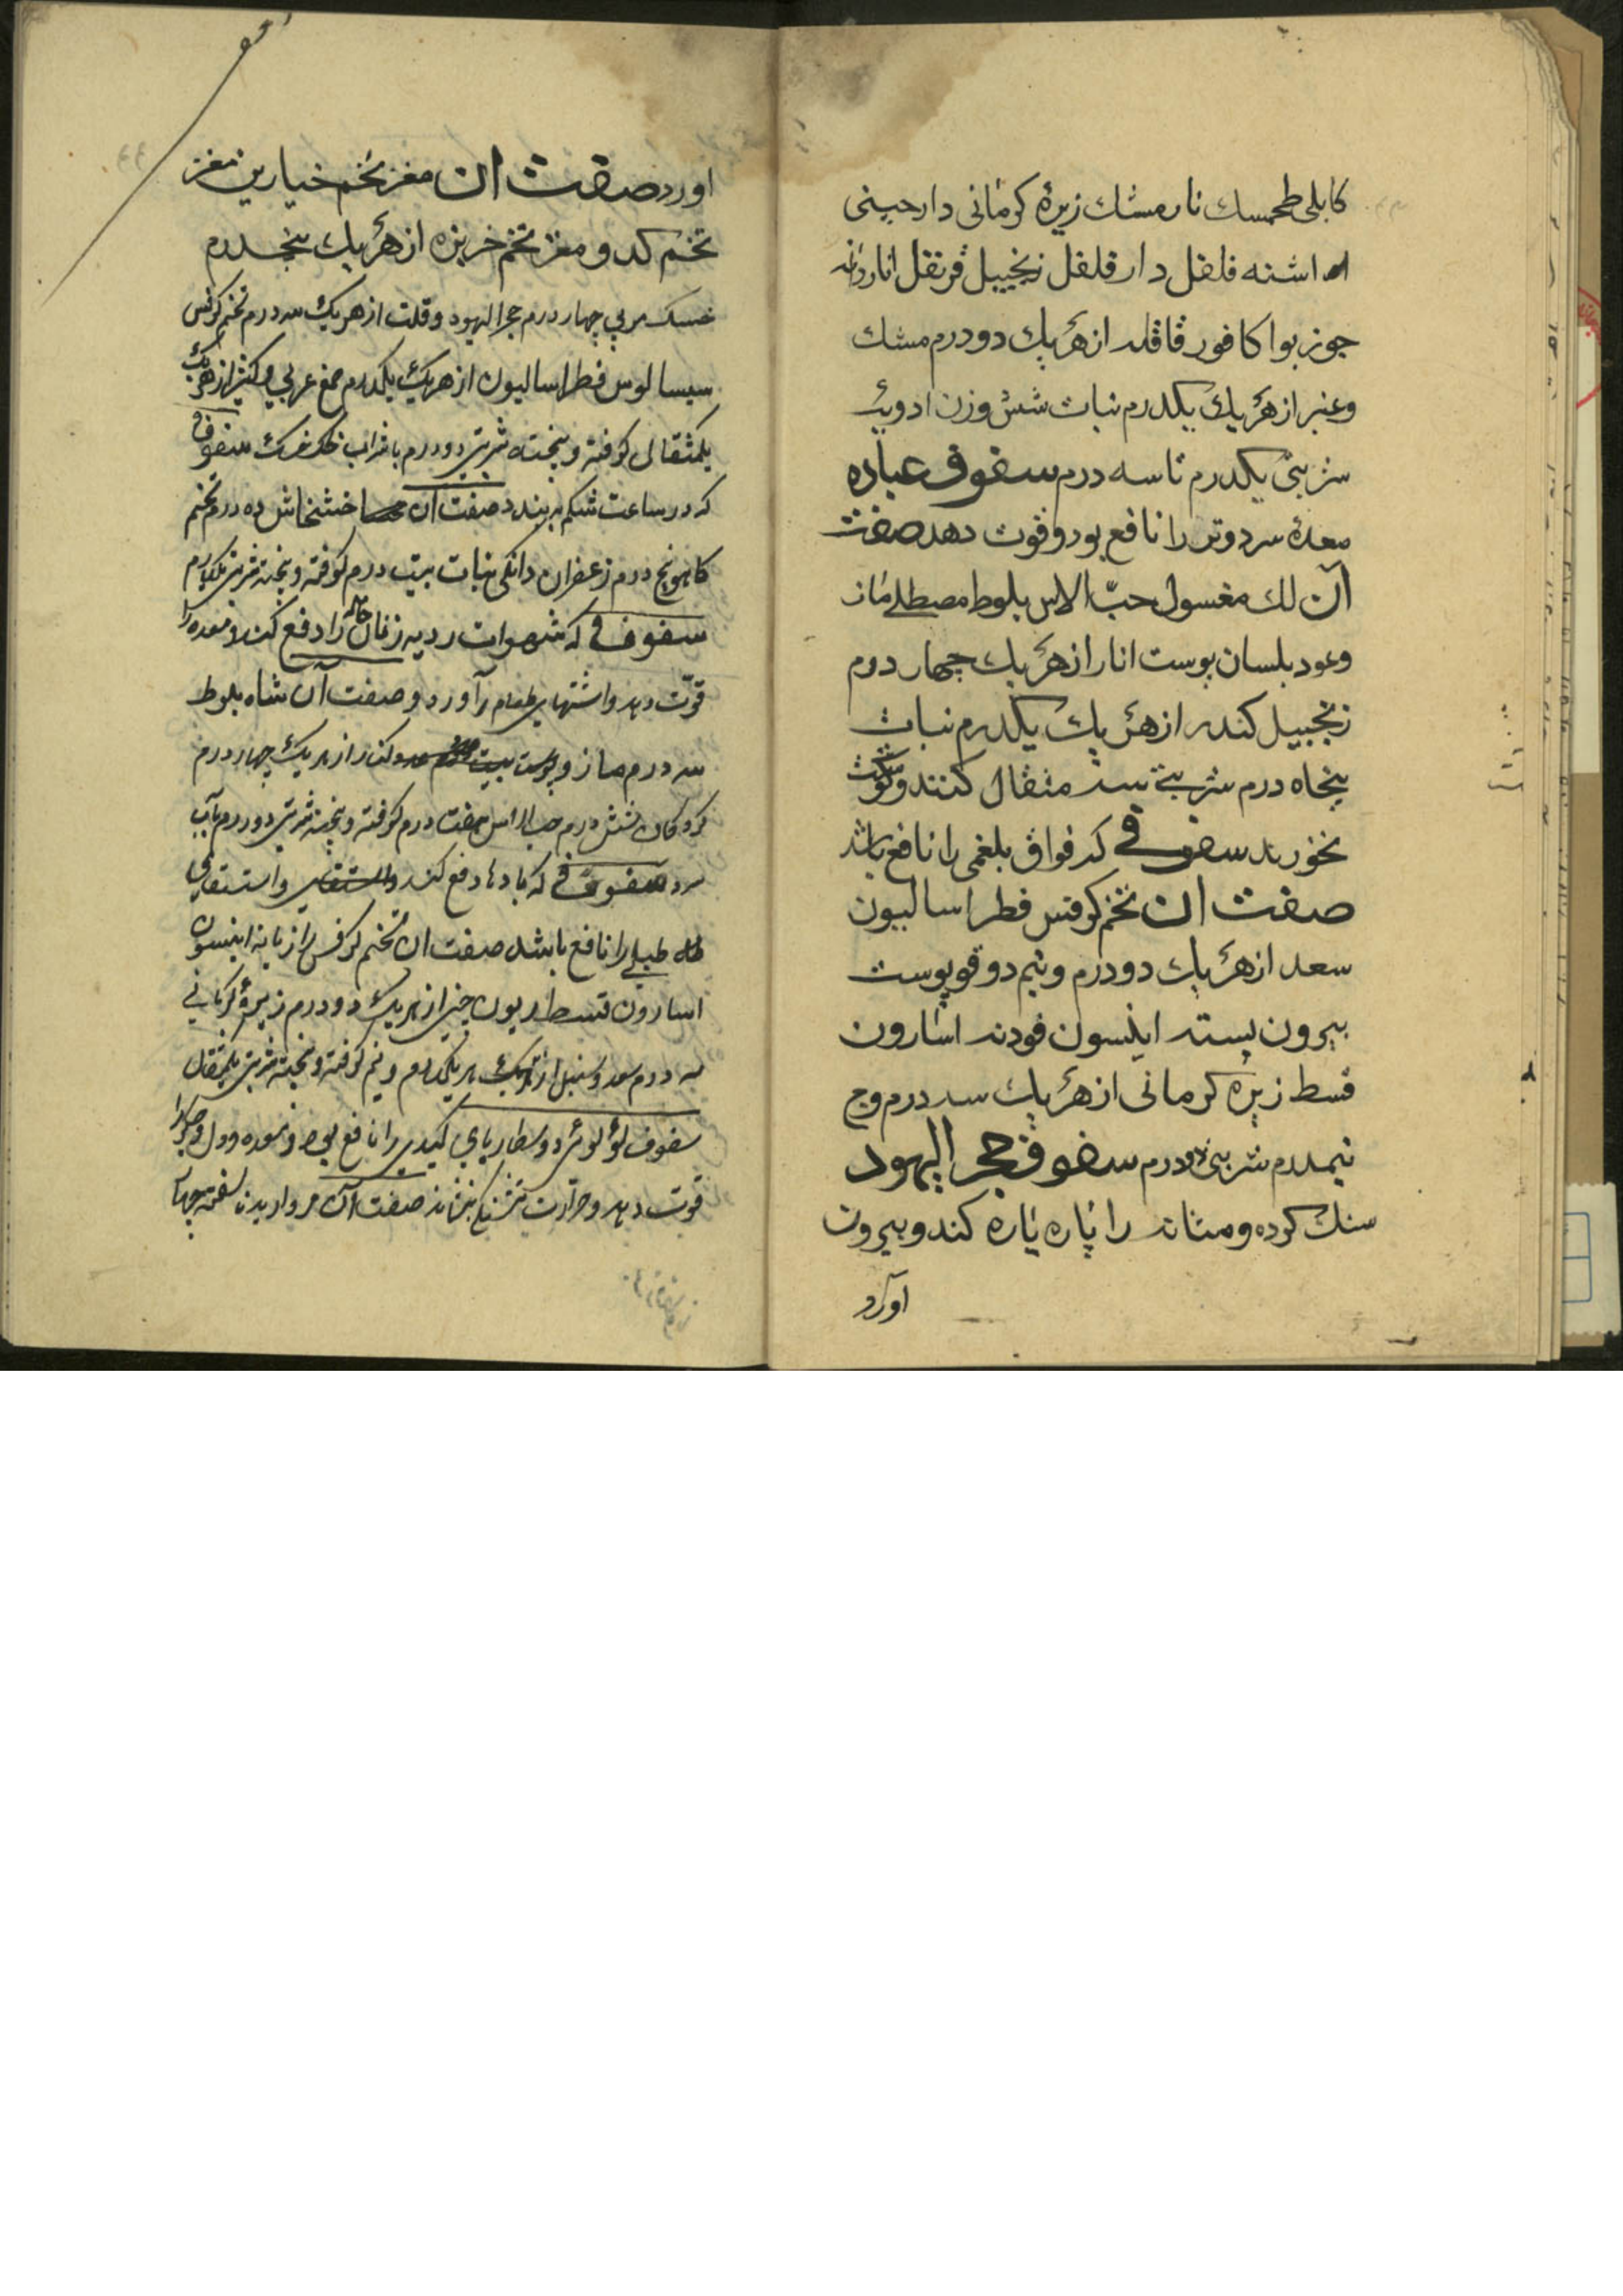 کابلی طحمسک نارمشک زیرهٔ کرمانی دارچینی
اشنه فلفل دارفلفل زنجبیل قرنفل اناردانه
جوز بوا کافور قاقله از هر یک دو درم مشک
و عنبر از هر یک یکدرم نبات شش وزن ادویه
شربتی یکدرم تا سه درم سفوف عباده
معدهٔ سرد و تر را نافع بود و قوت دهد صفت
آن لک مغسول حبّ الاس بلوط مصطکی
و عود بلسان پوست انار از هر یک چهار درم
زنجبیل کندر از هر یک یکدرم نبات
پنجاه درم شربتی سه مثقال کنند و
بخورند سفوفی که فواق بلغمی را نافع باشد
صفت ان تخم کرفس فطراسالیون
سعد از هر یک دو درم و نیم دوقو پوست
بیرون پسته انیسون فودنه اسارون
قسط زیره کرمانی از هر یک سه درم وج
نیمدرم شربتی دو درم سفوف حجر الیهود
سنک کرده و مثانه را پاره پاره کند و بیرون
آورد
اورد صفت ان مغز تخم خیارین مغز
تخم کدو و مغز تخم خربزه از هر یک پنجدرم
خسک مربی چهار درم حجر الیهود و قلت از هر یک سه درم تخم کرفس
سیسالوس فطراسالیون از هر یک یکدرم صمغ عربی و کتیرا از هر یک
یکمثقال کوفته و بیخته شربتی دو درم با شراب سفوفی
که در ساعت شکم ببندد صفت آن خشخاش ده درم تخم
کاهو پنج درم زعفران دانکی نبات بیست درم کوفته و بیخته شربتی یکدرم
سفوفی که شهوات ردیه زنان حامله را دفع کند و معده را
قوّت دهد و اشتهای طعام آورد و صفت آن شاه بلوط
سه درم مازو پوست کنار از هر یک چهار درم
شش درم حب الاس هفت درم کوفته و بیخته شربتی دو درم بآب
سرد سفوفی که بادها دفع کند و استسقای
طبلی را نافع باشد صفت ان تخم کرفس رازیانه انیسون
اسارون قسط چینی از هر یک دو درم زیرهٔ کرمانی
سه درم سعد و سنبل از هر یک یکدرم و نیم کوفته و بیخته شربتی یکمثقال
سفوف لؤلوئی دوسنطاریای کبدی را نافع بود و معده و دل و جکر را
قوت دهد و حرارت تشنکی بنشاند صفت آن مروارید ناسفته چهار